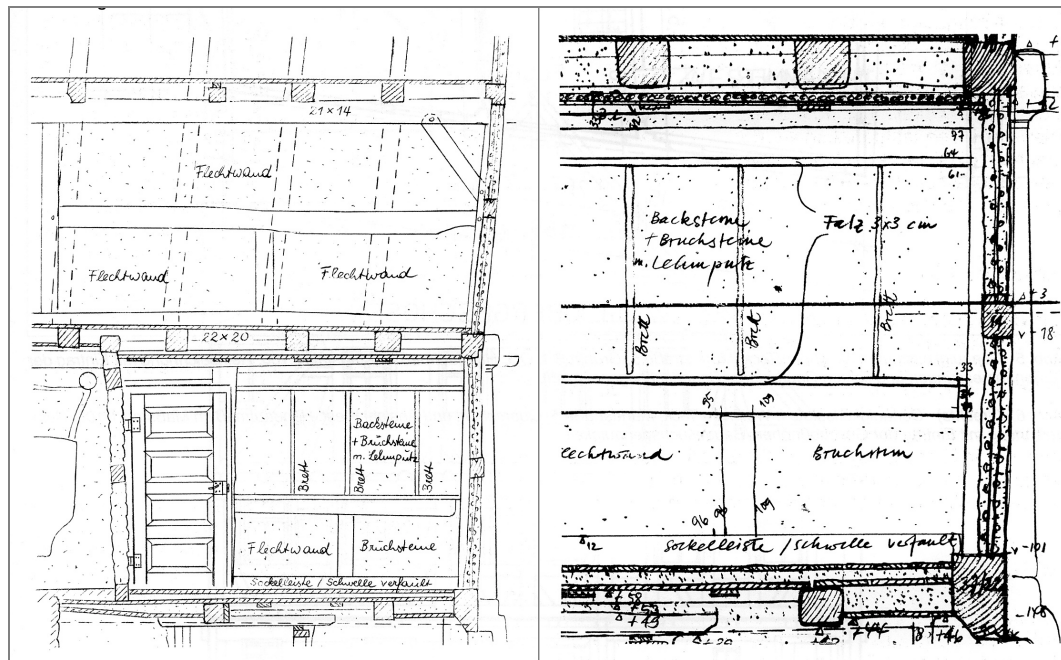 21×14
Flechtwand
Flechtwand
Flechtwand
22×20
Backsteine
+ Bruchsteine
m. Lehmputz
Brett
Brett
Brett
Flechtwand
Bruchsteine
Sockelleiste / Schwelle verfault
97
64
61-
Backsteine
+ Bruchsteine
m. Lehmputz
Falz 3x3 cm
Brett
Brett
Brett
+3
14
-18
33
95
109
lechtwand
Bruchstein
96
96
109
12
Sockelleiste / Schwelle verfault
-101
+44
+46